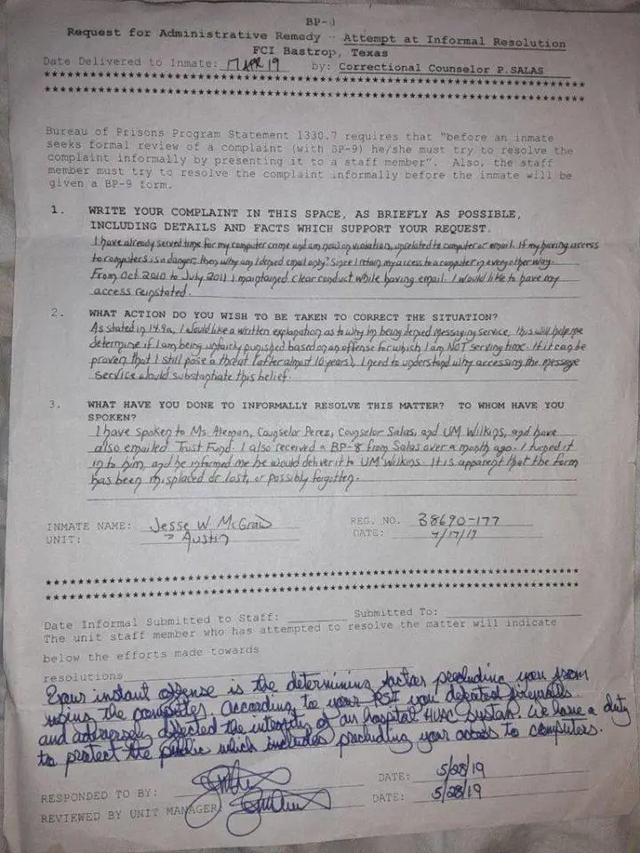 BP-8
Request for Administrative Remedy - Attempt at Informal Resolution
FCI Bastrop, Texas
Date Delivered to Inmate: 17 APR 19 by: Correctional Counselor P.SALAS
************************************************************
************************************************************
Bureau of Prisons Program Statement 1330.7 requires that "before an inmate
seeks formal review of a complaint (with BP-9) he/she must try to resolve the
complaint informally by presenting it to a staff member". Also, the staff
member must try to resolve the complaint informally before the inmate will be
given a BP-9 form.
1. WRITE YOUR COMPLAINT IN THIS SPACE, AS BRIEFLY AS POSSIBLE,
INCLUDING DETAILS AND FACTS WHICH SUPPORT YOUR REQUEST.
I have already served time for my computer crime and am now on violation, unrelated to computer or email. If my having access
to computers is a danger, then why am I denied email only? Since I retain my access to a computer in every other way.
From Oct 2010 to July 2011 I maintained clear conduct while having email. I would like to have my
access reinstated.
2. WHAT ACTION DO YOU WISH TO BE TAKEN TO CORRECT THE SITUATION?
As stated in 14.9a, I would like a written explanation as to why I'm being denied messaging service, this will help me
determine if I am being unfairly punished based on an offense for which I am NOT serving time. If it can be
proven that I still pose a threat (after almost 10 years), I need to understand why accessing the message
service would substantiate this belief.
3. WHAT HAVE YOU DONE TO INFORMALLY RESOLVE THIS MATTER? TO WHOM HAVE YOU
SPOKEN?
I have spoken to Ms Aleman, Counselor Perez, Counselor Salas, and UM Wilkins, and have
also emailed Trust Fund. I also received a BP-8 from Salas over a month ago. I turned it
in to him, and he informed me he would deliver it to UM Wilkins. It is apparent that the form
has been misplaced or lost, or possibly forgotten.
INMATE NAME: Jesse W. McGraw REG. NO. 38690-177
UNIT: Austin DATE: 4/17/19
************************************************************
************************************************************
Date Informal Submitted to Staff: Submitted To:
The unit staff member who has attempted to resolve the matter will indicate
below the efforts made towards
resolutions
Your instant offense is the determining factor precluding you from
using the computer. According to your PSI you defeated firewalls
and adversely affected the integrity of an hospital HVAC system. We have a duty
to protect the public which includes precluding your access to computers.
RESPONDED TO BY: DATE: 5/28/19
REVIEWED BY UNIT MANAGER: DATE: 5/28/19